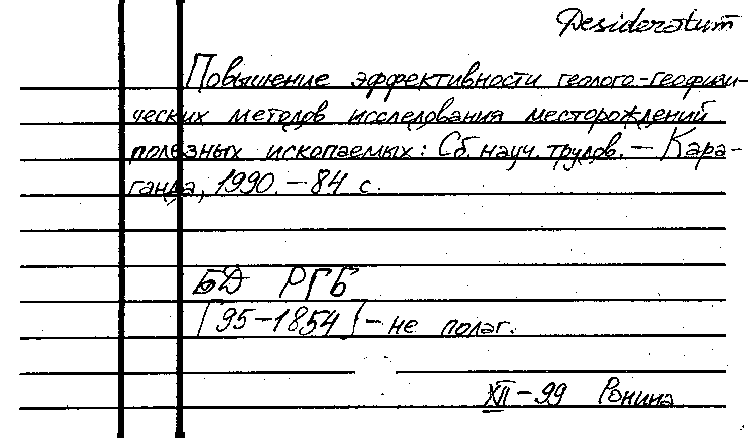 Desideratum
Повышение эффективности геолого-геофизи-
ческих методов исследования месторождений
полезных ископаемых: Сб. науч. трудов. – Кара-
ганда, 1990. – 84 с.
БД РГБ
[95-1854] – не полаг.
XII – 99 Ронина